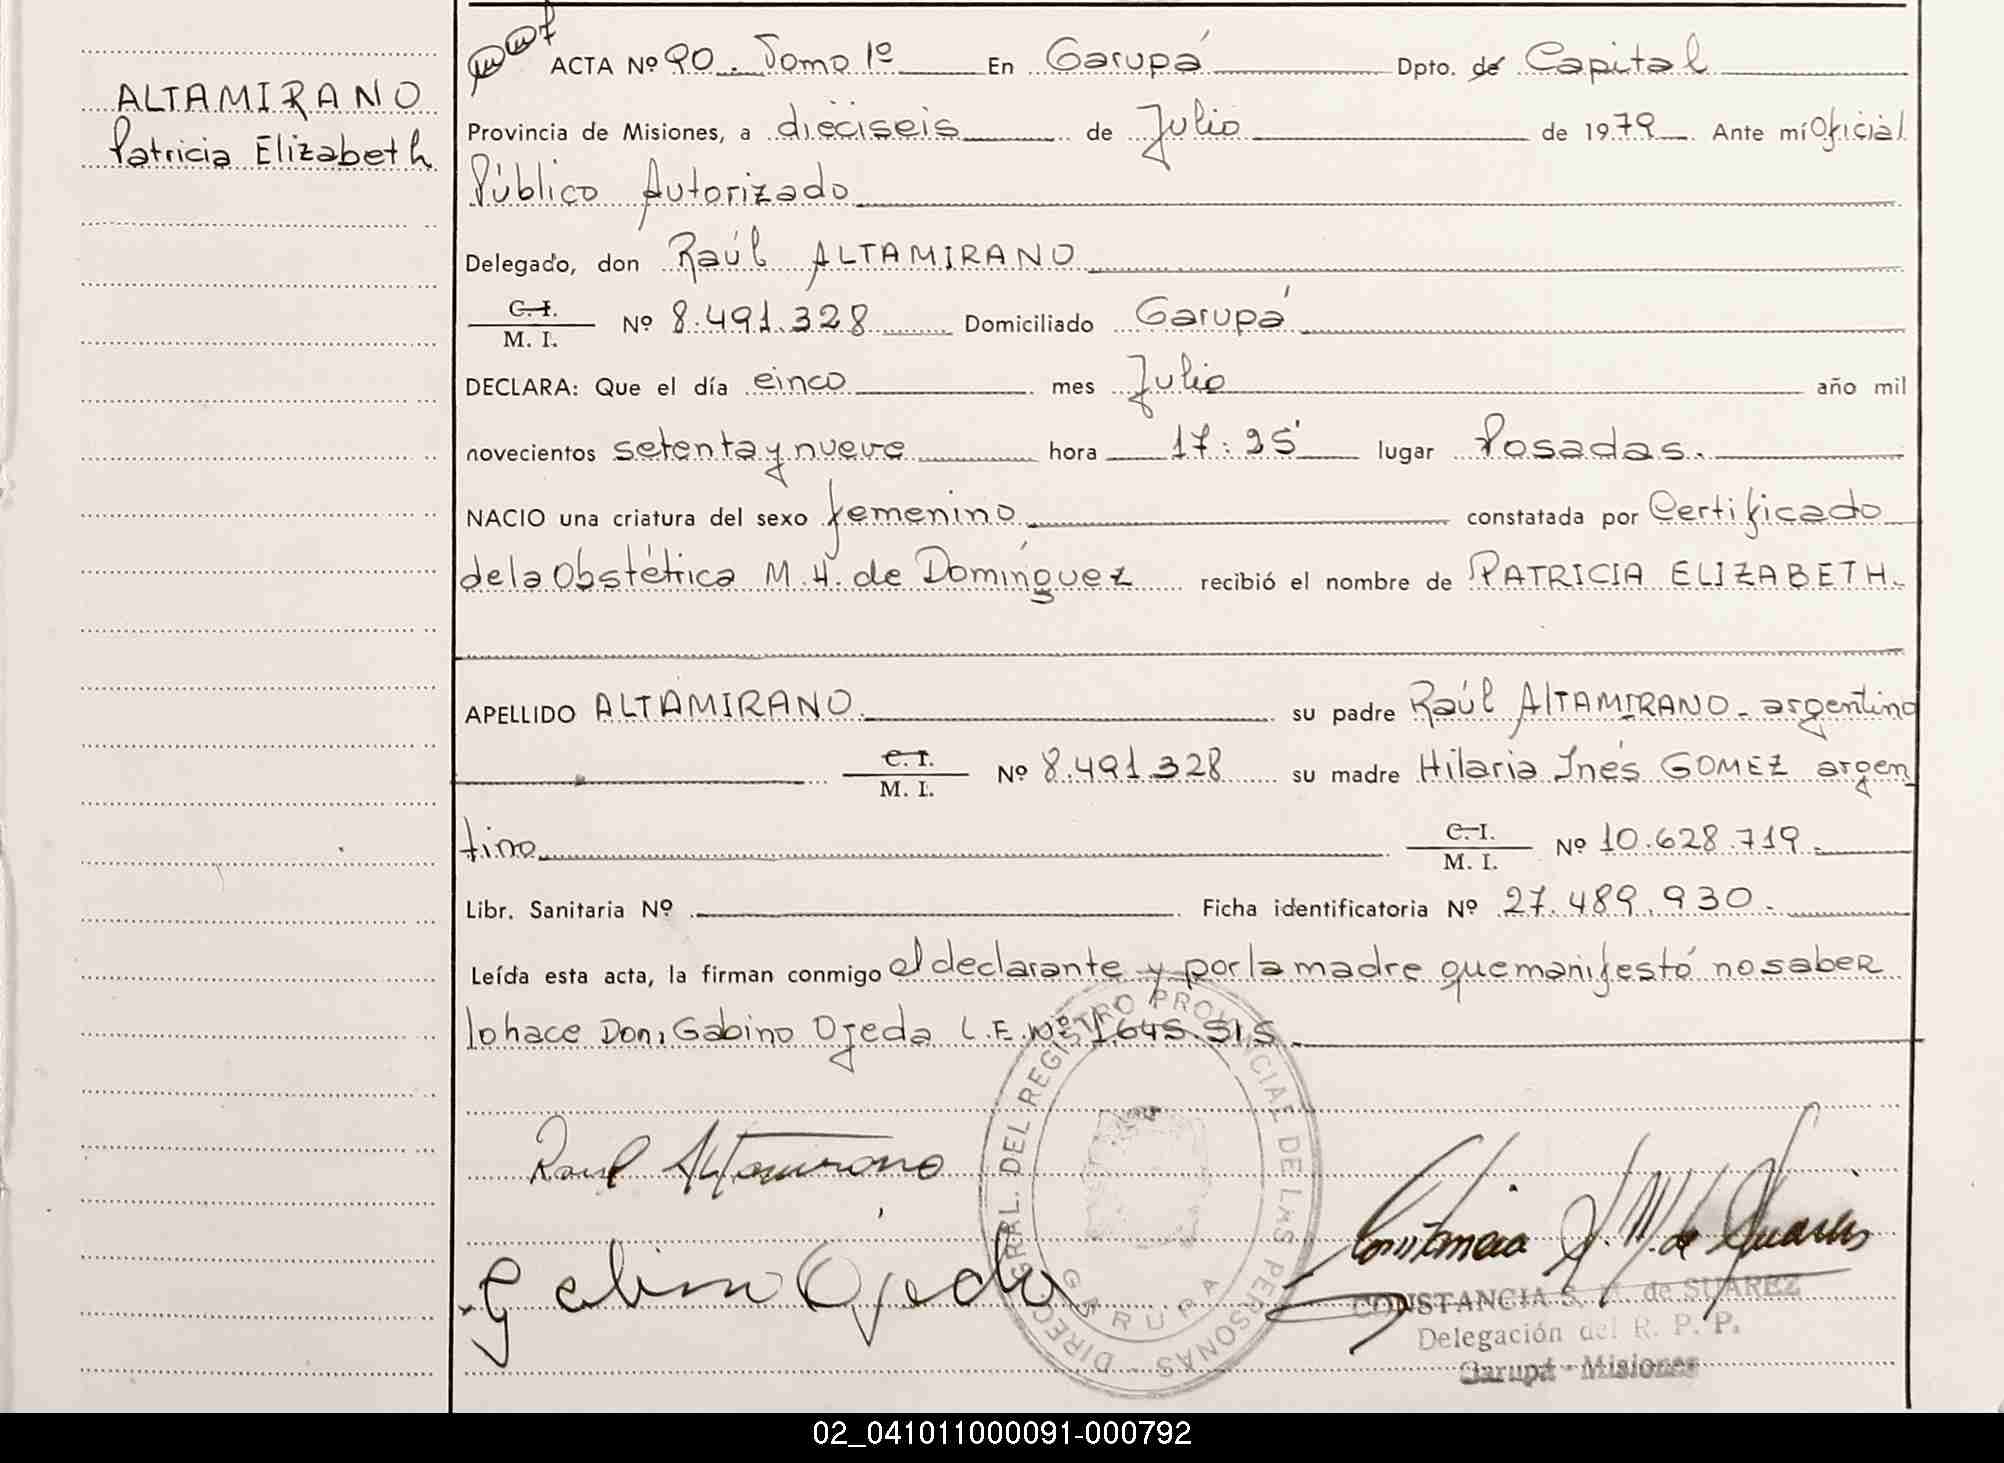 ALTAMIRANO
Patricia Elizabeth
ACTA Nº 90. Tomo 1º En Garupá Dpto. de Capital
Provincia de Misiones, a dieciseis de Julio de 1979 Ante mí Oficial
Público Autorizado
Delegado, don Raúl ALTAMIRANO
C.I.
M. I. Nº 8.491.328 Domiciliado Garupá
DECLARA: Que el día cinco mes Julio año mil
novecientos setenta y nueve hora lugar Posadas.
NACIO una criatura del sexo femenino constatada por Certificado
de la Obstétrica M.H. de Domínguez recibió el nombre de PATRICIA ELIZABETH.
APELLIDO ALTAMIRANO su padre Raúl ALTAMIRANO - argentino
C.I.
M. I. Nº 8.491.328 su madre Hilaria Inés GOMEZ argen
tino C.I.
M. I. Nº 10.628.719.
Libr. Sanitaria Nº Ficha identificatoria Nº 27.489.930.
Leída esta acta, la firman conmigo el declarante y por la madre que manifestó no saber
lo hace Don, Gabino Ojeda L.E.Nº 1.645.515
Raul Altamirano
Gabino Ojeda
Constancia S. M. de Suarez
DIREC. GRAL. DEL REGISTRO PROVINCIAL DE LAS PERSONAS -
GARUPA
CONSTANCIA S. M. de SUAREZ
Delegación del R. P. P.
Garupá - Misiones
02_041011000091-000792